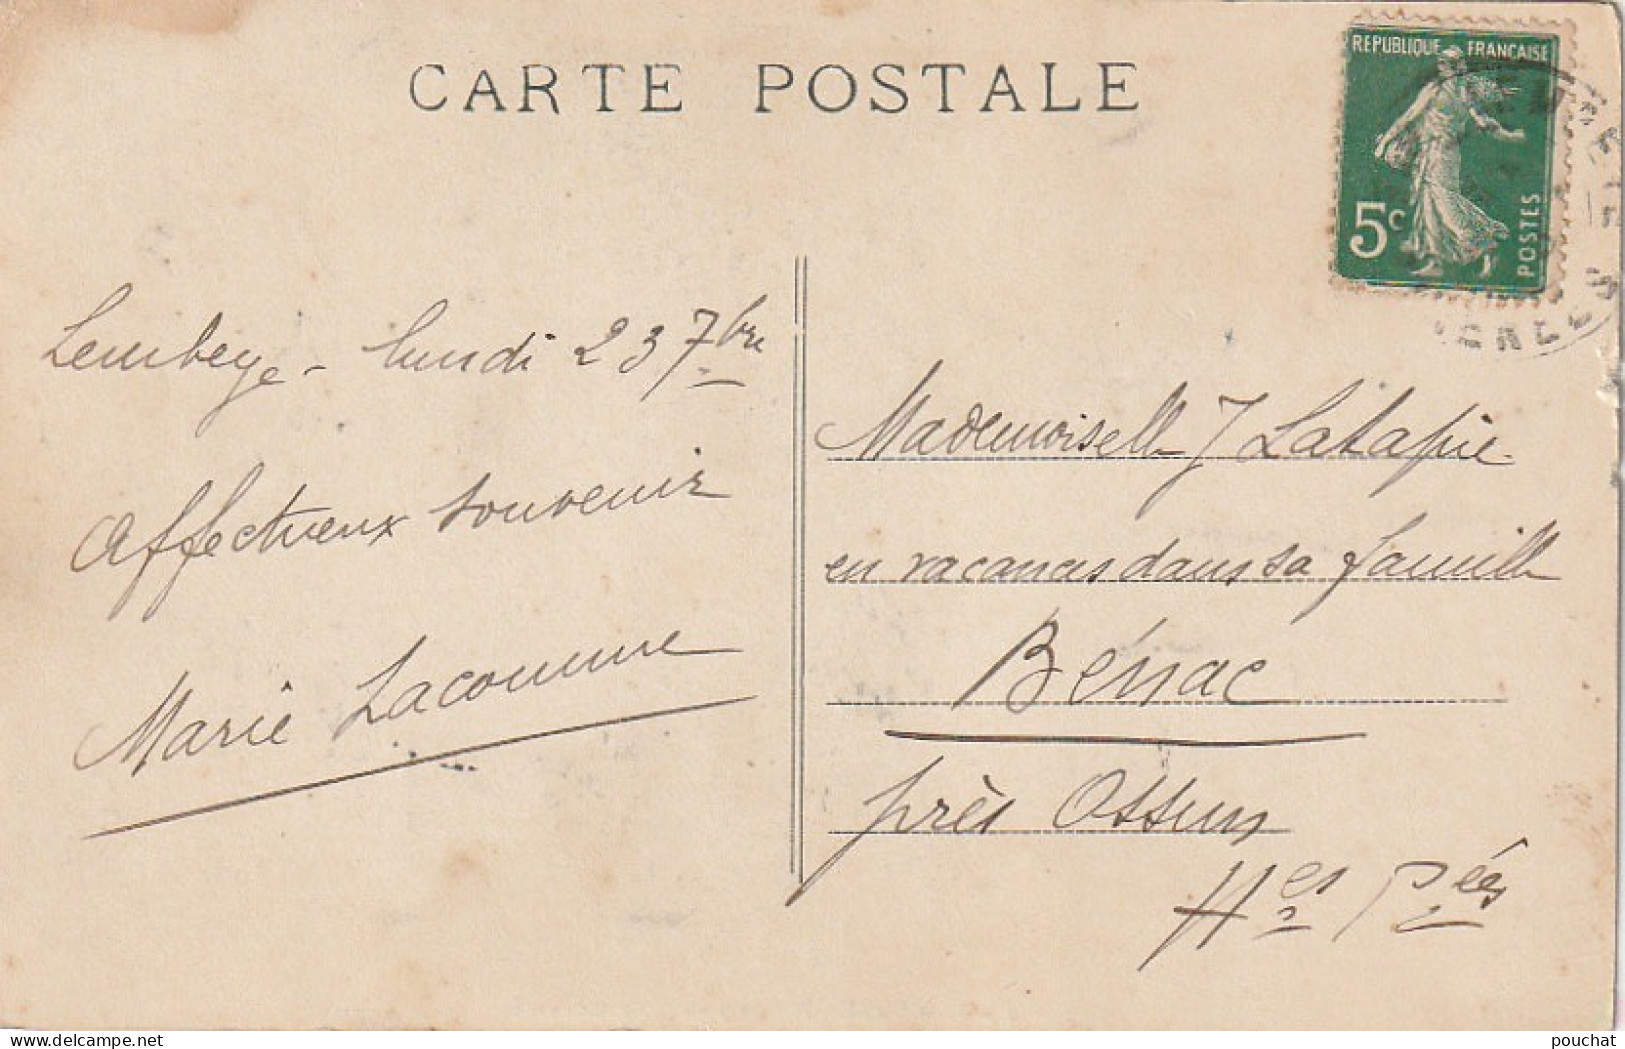 CARTE POSTALE
REPUBLIQUE FRANÇAISE
5c
POSTES
Lembeye - lundi 23 7bre
Affectueux souvenir
Marie Lacomme
Mademoiselle J Latapie
en vacances dans sa famille
Bénac
près Ossun
Htes Pées
pouchat